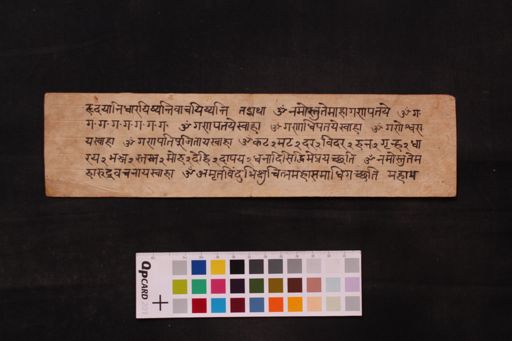 हृदयानिधारयिष्यन्तिवाचयिष्यन्ति तद्यथा ॐ नमोस्तुतेमाहागणपतये ॐ ग
ग·ग·ग·ग·ग·ग·ग· ॐ गणपतयेस्वाहा ॐ गणाधिपतयेस्वाहा ॐ गणेश्वरा
यस्वाहा ॐ गणपतिपूजितायस्वाहा ॐ कट२मट२दर२विदर२हन२गृह्न२धा
२भञ्ज२ मोह२देहि२दापय२धनादिसिद्धिमेप्रयच्छति ॐ नमोस्तुतेम
हारुद्रवचनायस्वाहा ॐ अमृतविंदु महासमाधिगच्छति महाभ
QPCARD